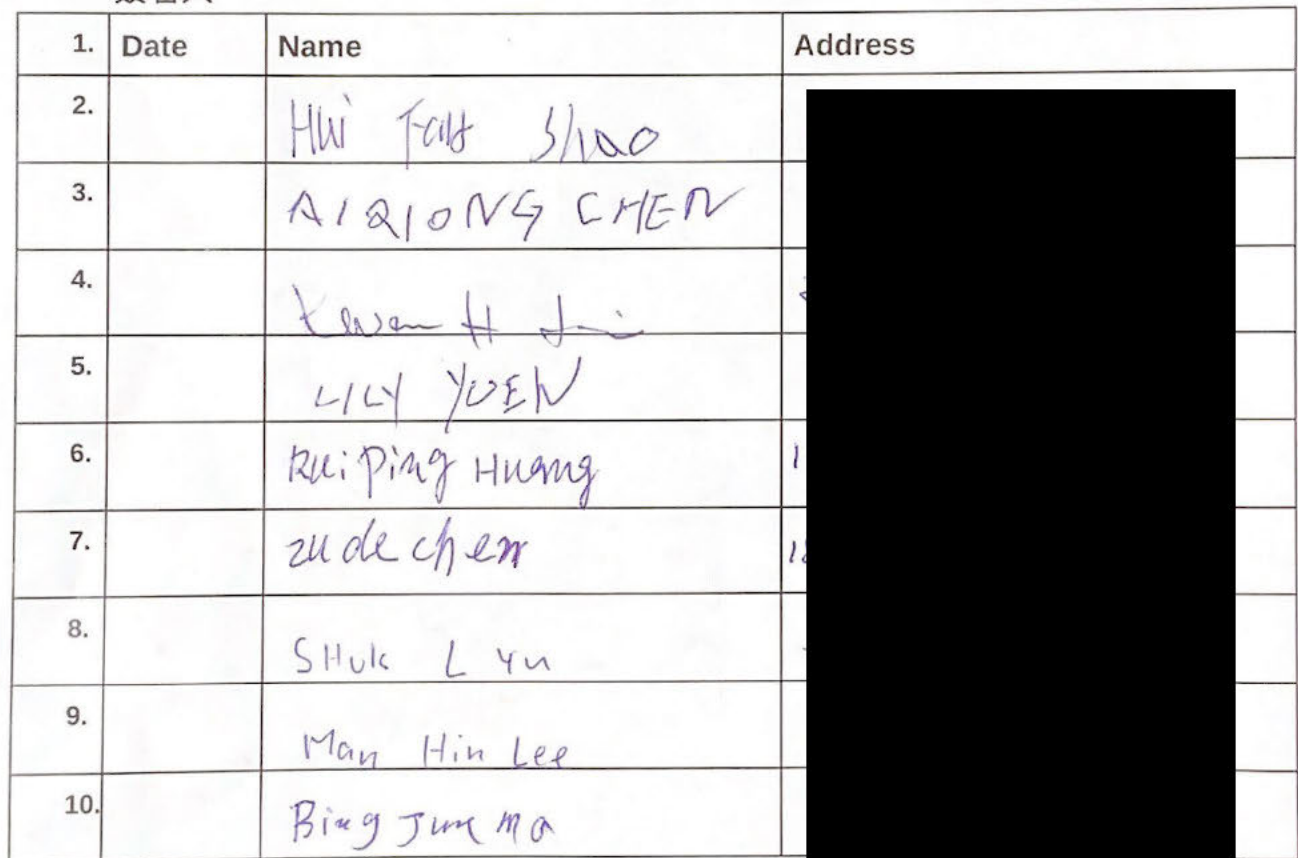 1. Date Name Address
2. Hui Shao
3. AIQIONG CHEN
4. Kwan H
5. LILY YUEN
6. Rui Ping Huang
7. zude chen
8. SHUK L YU
9. Man Hin Lee
10. Bing June Ma